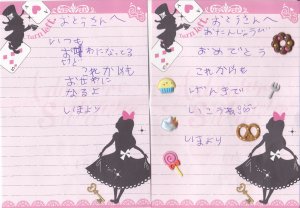 おとうさんへ
いつも
お世わになってるよ
これからも
おせわに
なるよ
いまより
おとうさんへ
おたんじょうび
おめでとう
これからも
げんきで
いこうね
いまより